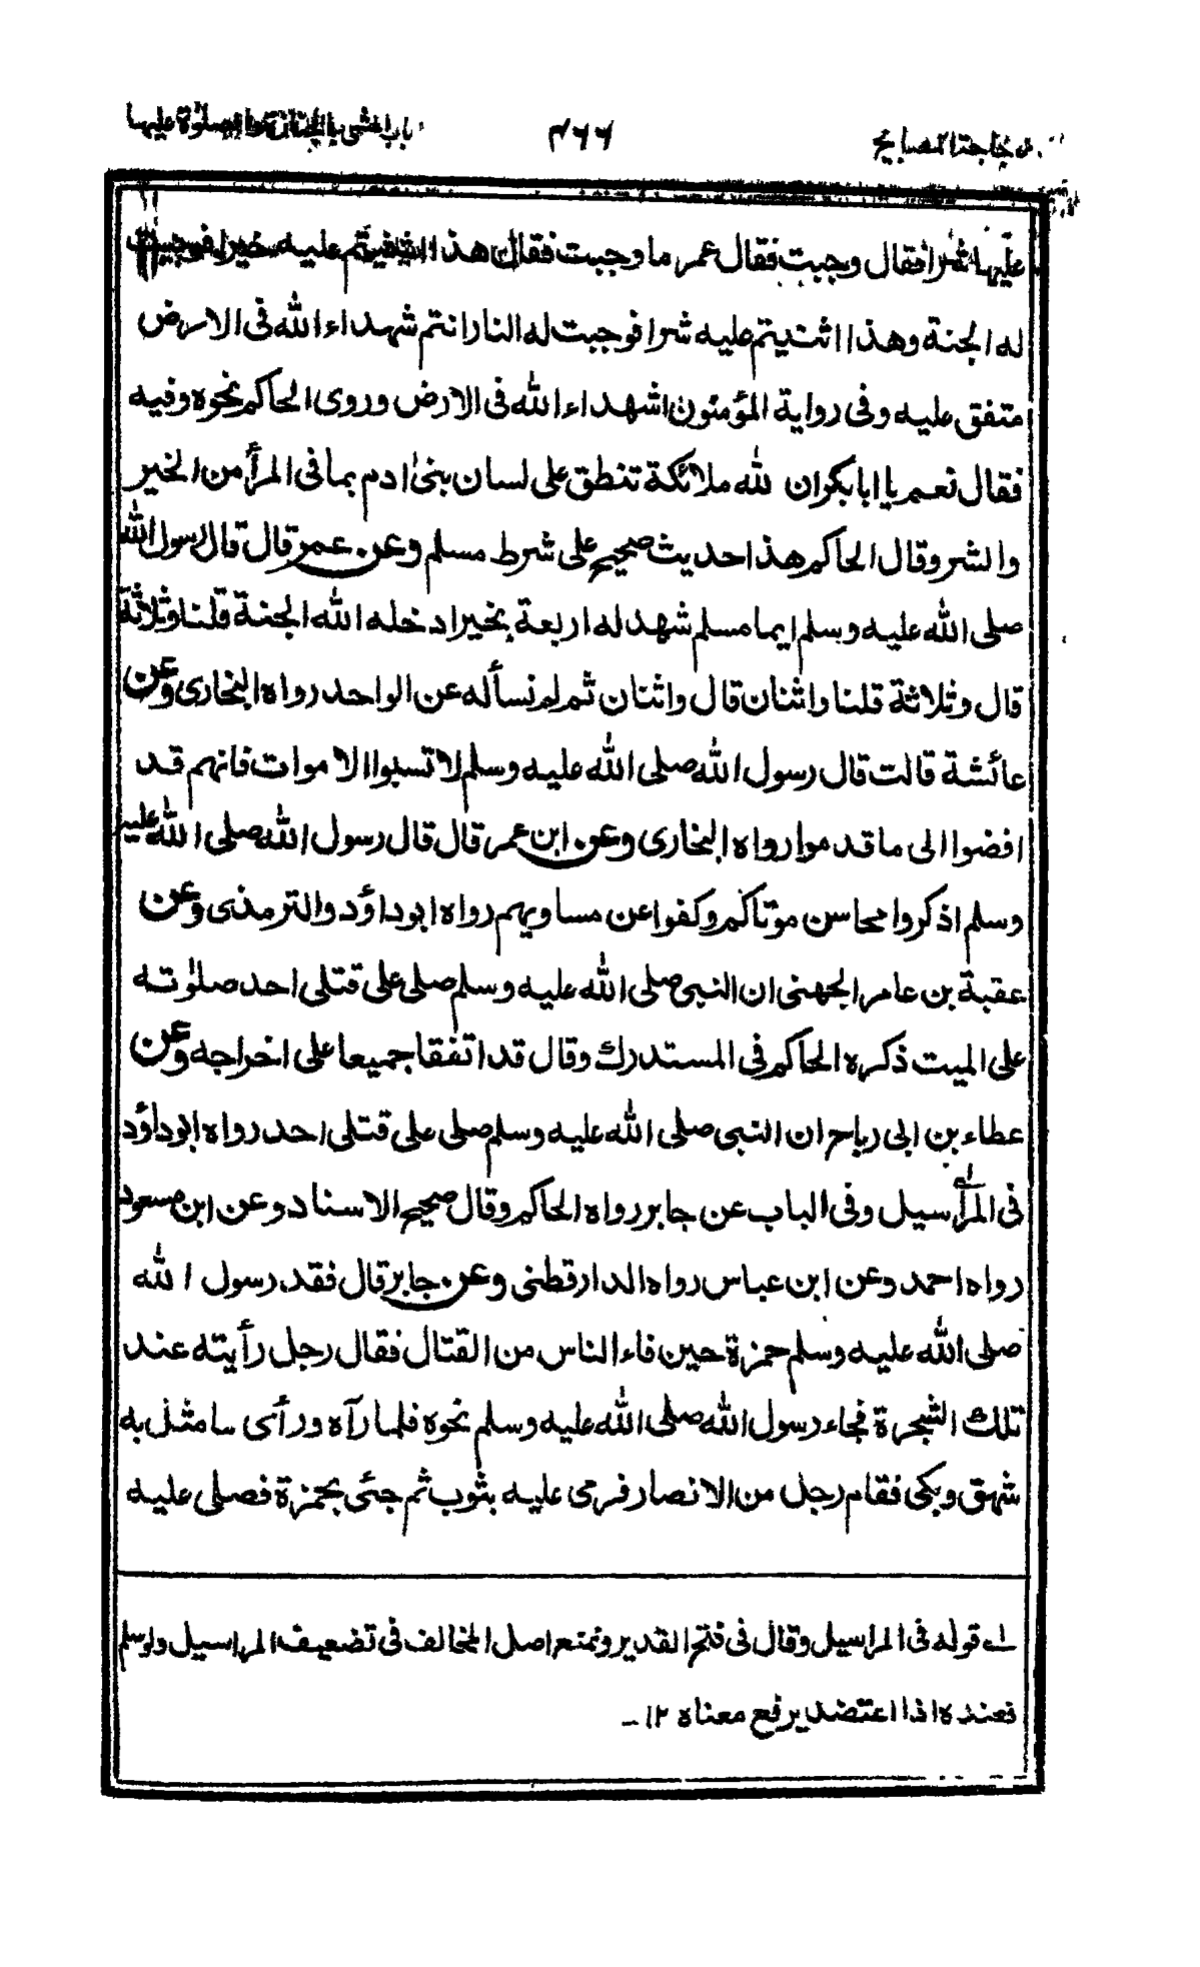 زجاجة المصابيح ٤٦٦ باب المشي بالجنازة والصلوٰة عليها
عليها شرا فقال وجبت فقال عمر ما وجبت فقال هذا اثنيتم عليه خيرا فوجبت
له الجنة وهذا اثنيتم عليه شرا فوجبت له النار انتم شهداء الله فى الارض
متفق عليه وفى رواية المؤمنون شهداء الله فى الارض وروى الحاكم نحوه وفيه
فقال نعم يا ابا بكر ان لله ملائكة تنطق على لسان بنى ادم بما فى المرأ من الخير
والشر وقال الحاكم هذا حديث صحيح على شرط مسلم وعن عمر قال قال رسول الله
صلى الله عليه وسلم ايما مسلم شهد له اربعة بخير ادخله الله الجنة قلنا وثلاثة
قال وثلاثة قلنا واثنان قال واثنان ثم لم نسأله عن الواحد رواه البخارى وعن
عائشة قالت قال رسول الله صلى الله عليه وسلم لا تسبوا الاموات فانهم قد
افضوا الى ما قدموا رواه البخارى وعن ابن عمر قال قال رسول الله صلى الله عليه
وسلم اذكروا محاسن موتاكم وكفوا عن مساويهم رواه ابوداؤد والترمذى وعن
عقبة بن عامر الجهنى ان النبى صلى الله عليه وسلم صلى على قتلى احد صلوٰته
على الميت ذكره الحاكم فى المستدرك وقال قد اتفقا جميعا على اخراجه وعن
عطاء بن ابى رباح ان النبى صلى الله عليه وسلم صلى على قتلى احد رواه ابوداؤد
فى المرأسيل وفى الباب عن جابر رواه الحاكم وقال صحيح الاسناد وعن ابن مسعود
رواه احمد وعن ابن عباس رواه الدارقطنى وعن جابر قال فقد رسول الله
صلى الله عليه وسلم حمزة حين فاء الناس من القتال فقال رجل رأيته عند
تلك الشجرة فجاء رسول الله صلى الله عليه وسلم نحوه فلما رآه ورأى ما مثل به
شهق وبكى فقام رجل من الانصار فرمى عليه بثوب ثم جئى بحمزة فصلى عليه
لـه قوله فى المراسيل وقال فى فتح القدير ونمنع اصل المخالف فى تضعيف المراسيل ولوسلم
فعنده اذا اعتضد يرفع معناه ١٢ـ